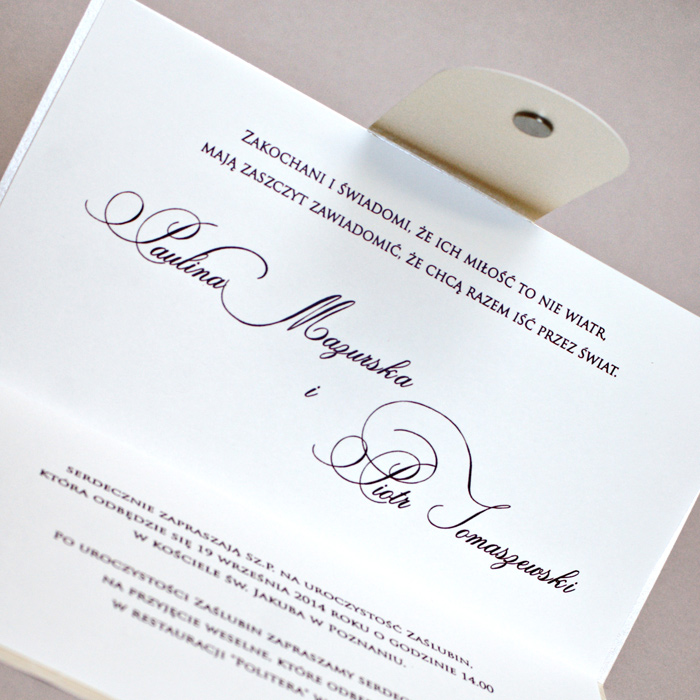 Zakochani i świadomi, że ich miłość to nie wiatr,
mają zaszczyt zawiadomić, że chcą razem iść przez świat.
Paulina Mazurska
i
Piotr Tomaszewski
serdecznie zapraszają Sz.P. na uroczystość zaślubin,
która odbędzie się 19 września 2014 roku o godzinie 14.00
w kościele św. Jakuba w Poznaniu.
Po uroczystości zaślubin zapraszamy
na przyjęcie weselne, które
w restauracji "Politera" w